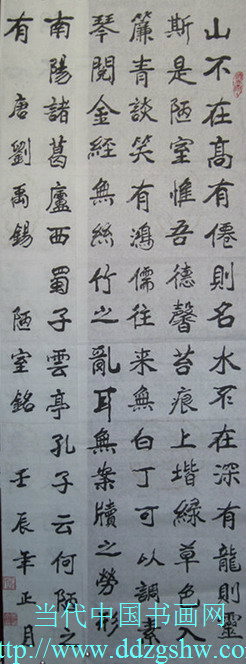 山不在高有僊則名水不在深有龍則靈
斯是陋室惟吾德馨苔痕上堦緑草色入
簾青談笑有鴻儒往来無白丁可以調素
琴閲金經無絲竹之亂耳無案牘之勞形
南陽諸葛廬西蜀子雲亭孔子云何陋之
有 唐劉禹錫 陋室銘 壬辰年正月
当代中国书画网
http://www.ddzgshw.com